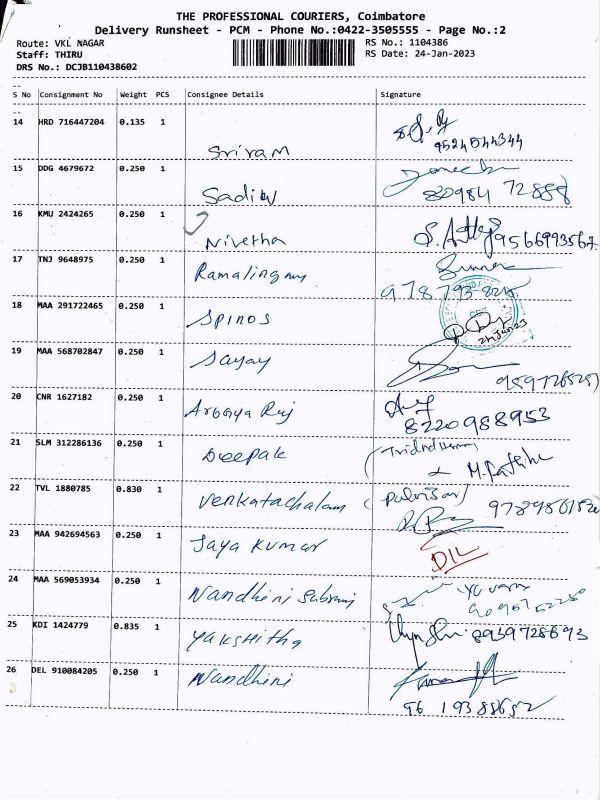 THE PROFESSIONAL COURIERS, Coimbatore
Delivery Runsheet - PCM - Phone No.:0422-3505555 - Page No.:2
Route: VKL NAGAR RS No.: 1104386
Staff: THIRU RS Date: 24-Jan-2023
DRS No.: DCJB110438602
S No Consignment No Weight PCS Consignee Details Signature
14 HRD 716447204 0.135 1
Sriram 9524544344
15 DDG 4679672 0.250 1
Sadiw 820984 72888
16 KMU 2424265 0.250 1
Nivetha 9566993567
17 TNJ 9648975 0.250 1
Ramalingam
978793
18 MAA 291722465 0.250 1
Spinos
24 Jan 23
19 MAA 568702847 0.250 1
Sayay
20 CNR 1627182 0.250 1
Raj
8220988953
21 SLM 312286136 0.250 1
Deepak
22 TVL 1880785 0.830 1
Venkatachalam
23 MAA 942694563 0.250 1
Jaya Kumar DIL
24 MAA 569053934 0.250 1
Nandhini
25 KDI 1424779 0.835 1
Yakshitha 8939728693
26 DEL 910084205 0.250 1
Nandhini
96 19388652